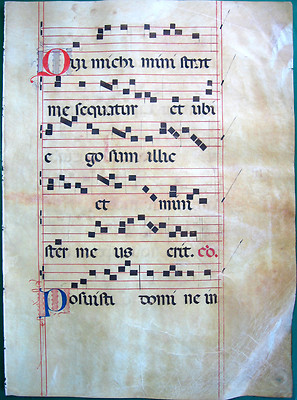 Qui michi ministrat
me sequatur et ubi
e go sum illic
et mini
ster me us erit. Co.
Posuisti domi ne in